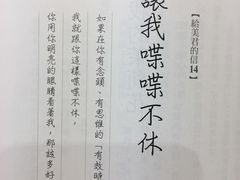 【給美君的信14】
讓我喋喋不休
如果在你有念頭、有思維的「有效時
我就跟你這樣喋喋不休,
你用你明亮的眼睛看著我,那該多好